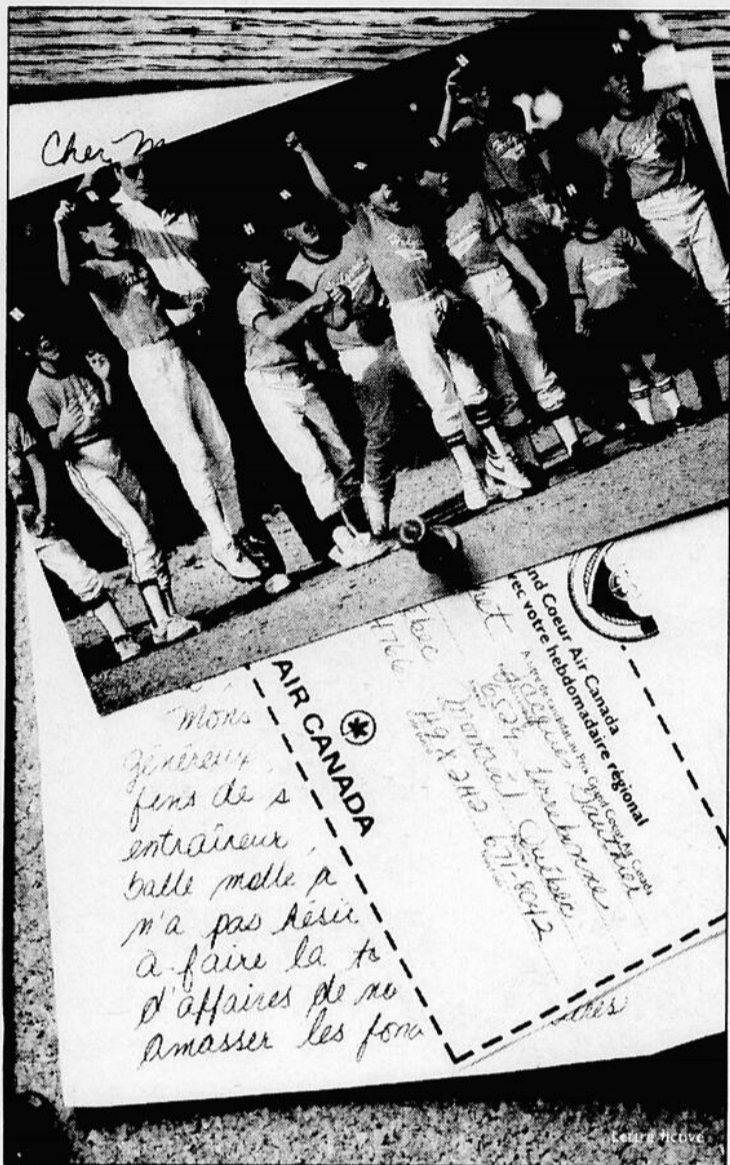 Cher M
Mons
généreux
fins de s
entraîneur,
balle molle p
n'a pas hésit
à faire la to
d'affaires de no
amasser les fond
utres
AIR CANADA
nd Coeur Air Canada
vec votre hebdomadaire régional
Jacques Gauthier
6529 Terrebonne
Montréal Québec
671-8042
Lettre fictive